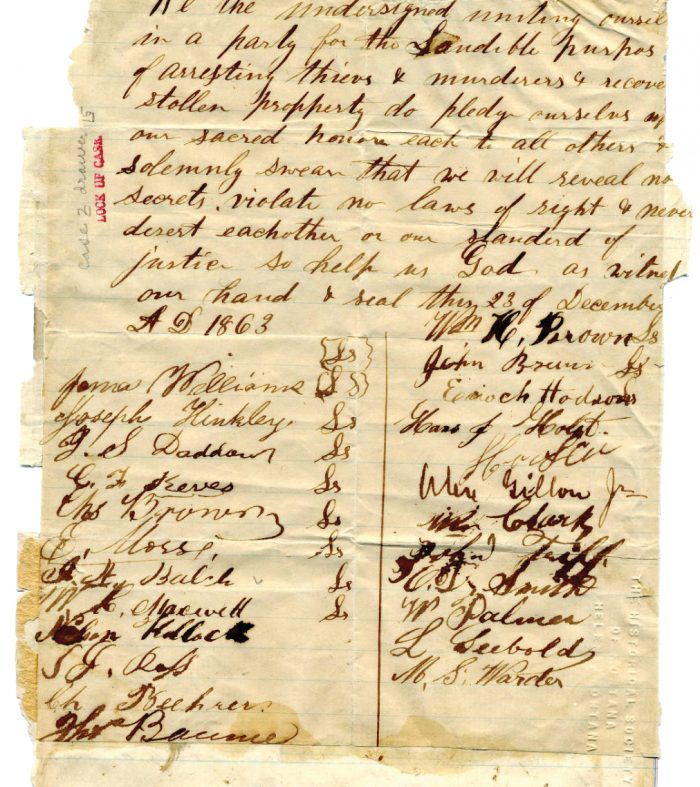 We the undersigned uniting oursel
in a party for the Laudible purpos
of arresting thievs & murderers & recove
stollen propperty do pledge ourselvs up
our sacred honor each to all others &
solemnly swear that we will reveal no
secrets, violate no laws of right & never
desert eachother or our standerd of
justice so help us God as witnes
our hand & seal this 23 of December
A D 1863
James Williams {Ls}
{Ls}
Joseph Hinkley Ls
J. S. Daddow Ls
C. F. Keeves Ls
Chs Brown Ls
E. Morse Ls
Balch Ls
W. H. Maxwell Ls
Nelson Kellock
S. J. Ross
Ch Beehrer
Thos Baume
Wm H. Brown Ls
John Brown Ls
Enoch Hodson Ls
Hans J Holst.
Alex Gillon Jr
Wm Clark
John Triff.
Smith
Wm Palmer
L Seebold
M. S. Warder
case 2 drawer 5
LOCK UP CASE
HISTORICAL SOCIETY
OF
MONTANA
HELENA